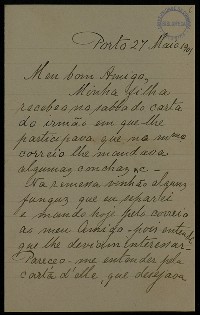 Porto 27 Maio 1901
Meu bom Amigo,
Minha filha
recebeu no sabbado carta
do irmão em que lhe
participava que na mmo
correio lhe mandava
algumas conchas, &c -
Na remessa vinhão alguns
fungus que eu separei
e mando hoje pelo correio
ao meu Amigo - pois entendo
que lhe devem interessar
Pareceo-me entender pela
carta d'elle, que desejava